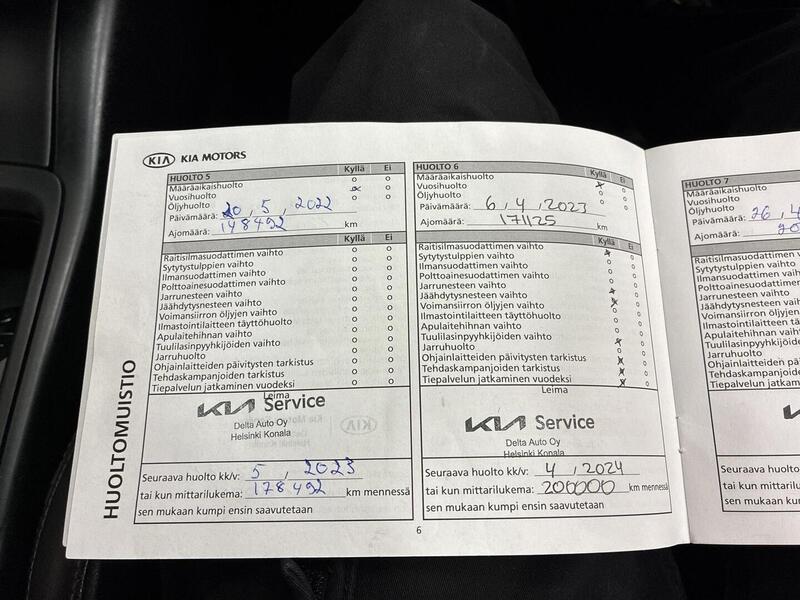 KIA KIA MOTORS
HUOLTO 5 Kyllä Ei
Määräaikaishuolto
Vuosihuolto
Öljyhuolto
Päivämäärä: 20, 5, 2022
Ajomäärä: 148492 km
Kyllä Ei
Raitisilmasuodattimen vaihto
Sytytystulppien vaihto
Ilmansuodattimen vaihto
Polttoainesuodattimen vaihto
Jarrunesteen vaihto
Jäähdytysnesteen vaihto
Voimansiirron öljyjen vaihto
Ilmastointilaitteen täyttöhuolto
Apulaitehihnan vaihto
Tuulilasinpyyhkijöiden vaihto
Jarruhuolto
Ohjainlaitteiden päivitysten tarkistus
Tehdaskampanjoiden tarkistus
Tiepalvelun jatkaminen vuodeksi
Leima
KIA Service
Delta Auto Oy
Helsinki Konala
Seuraava huolto kk/v: 5, 2023
tai kun mittarilukema: 178492 km mennessä
sen mukaan kumpi ensin saavutetaan
HUOLTOMUISTIO
HUOLTO 6 Kyllä Ei
Määräaikaishuolto
Vuosihuolto
Öljyhuolto
Päivämäärä: 6, 4, 2023
Ajomäärä: 171125 km
Kyllä Ei
Raitisilmasuodattimen vaihto
Sytytystulppien vaihto
Ilmansuodattimen vaihto
Polttoainesuodattimen vaihto
Jarrunesteen vaihto
Jäähdytysnesteen vaihto
Voimansiirron öljyjen vaihto
Ilmastointilaitteen täyttöhuolto
Apulaitehihnan vaihto
Tuulilasinpyyhkijöiden vaihto
Jarruhuolto
Ohjainlaitteiden päivitysten tarkistus
Tehdaskampanjoiden tarkistus
Tiepalvelun jatkaminen vuodeksi
Leima
KIA Service
Delta Auto Oy
Helsinki Konala
Seuraava huolto kk/v: 4, 2024
tai kun mittarilukema: 200000 km mennessä
sen mukaan kumpi ensin saavutetaan
6
HUOLTO 7
Määräaikaishuolto
Vuosihuolto
Öljyhuolto
Päivämäärä: 26, 4
Ajomäärä: 20
Raitisilmasuodattimen vaihto
Sytytystulppien vaihto
Ilmansuodattimen vaihto
Polttoainesuodattimen
Jarrunesteen vaihto
Jäähdytysnesteen vaihto
Voimansiirron öljyjen
Ilmastointilaitteen
Apulaitehihnan vaihto
Tuulilasinpyyhkijöiden
Jarruhuolto
Ohjainlaitteiden
Tehdaskampanjoiden
Tiepalvelun jatkaminen
Seuraava huolto kk/v:
tai kun mittarilukema:
sen mukaan kumpi